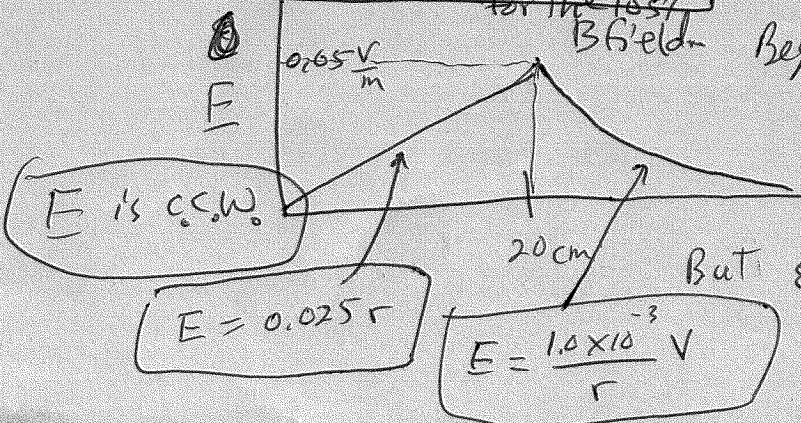 for the
B field
0.05 V/m
E
E is C.C.W.
20 cm
But
E = 0.025 r
E = 1.0 × 10⁻³ / r V